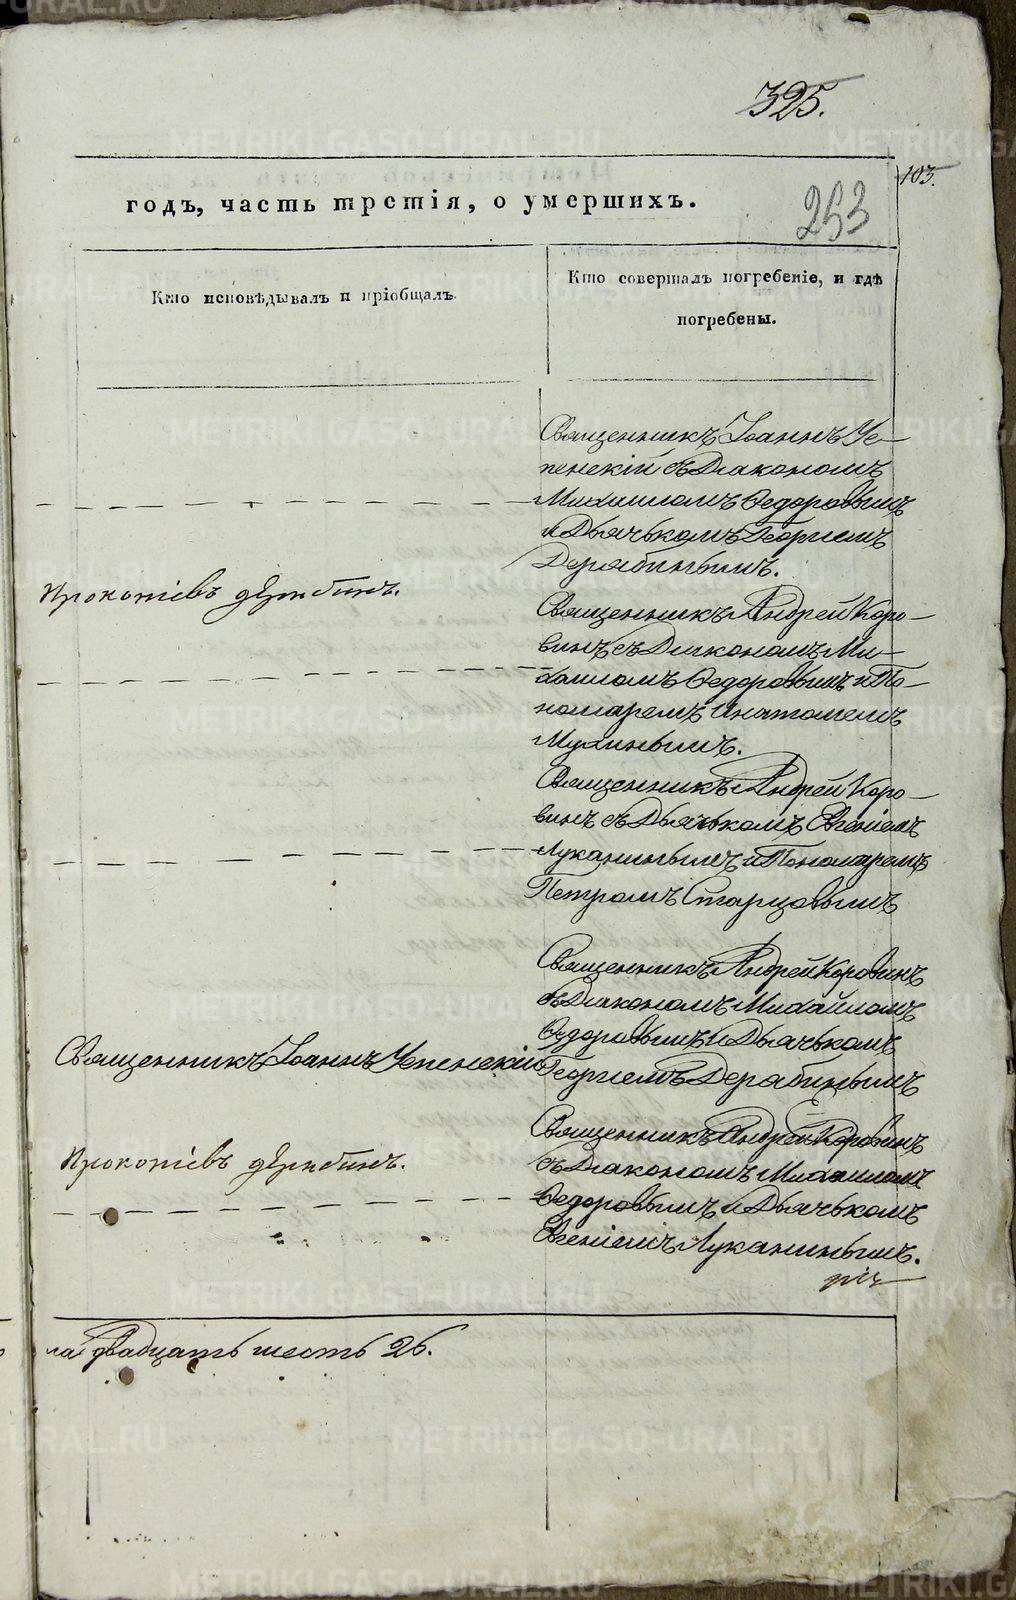 325.
103.
годъ, часть третія, о умершихъ.
253
Кто исповѣдывалъ и пріобщалъ.
Кто совершалъ погребеніе, и гдѣ
погребены.
Священникъ Іоаннъ Ус-
пенскій съ Діакономъ
Михаиломъ Ѳедоровымъ
и Дьячькомъ Георгіемъ
Дерябинымъ.
Священникъ Андрей Коро-
винъ съ Діакономъ Ми-
хаиломъ Ѳедоровымъ и По-
номаремъ Инатомемъ
Мухинымъ.
Священникъ Андрей Коро-
винъ съ Дьячькомъ Евгеніемъ
Луканинымъ и Пономаремъ
Петромъ Старцовымъ
Священникъ Андрей Коровинъ
съ Діакономъ Михайломъ
Ѳедоровымъ и Дьячькомъ
Священникъ Іоаннъ Успенскій
Георгіемъ Дерябинымъ
Священникъ Андрей Коровинъ
съ Діакономъ Михаиломъ
Ѳедоровымъ и Дьячькомъ
Евгеніемъ Луканинымъ.
ла двадцать шесть 26.
METRIKI.GASO-URAL.RU